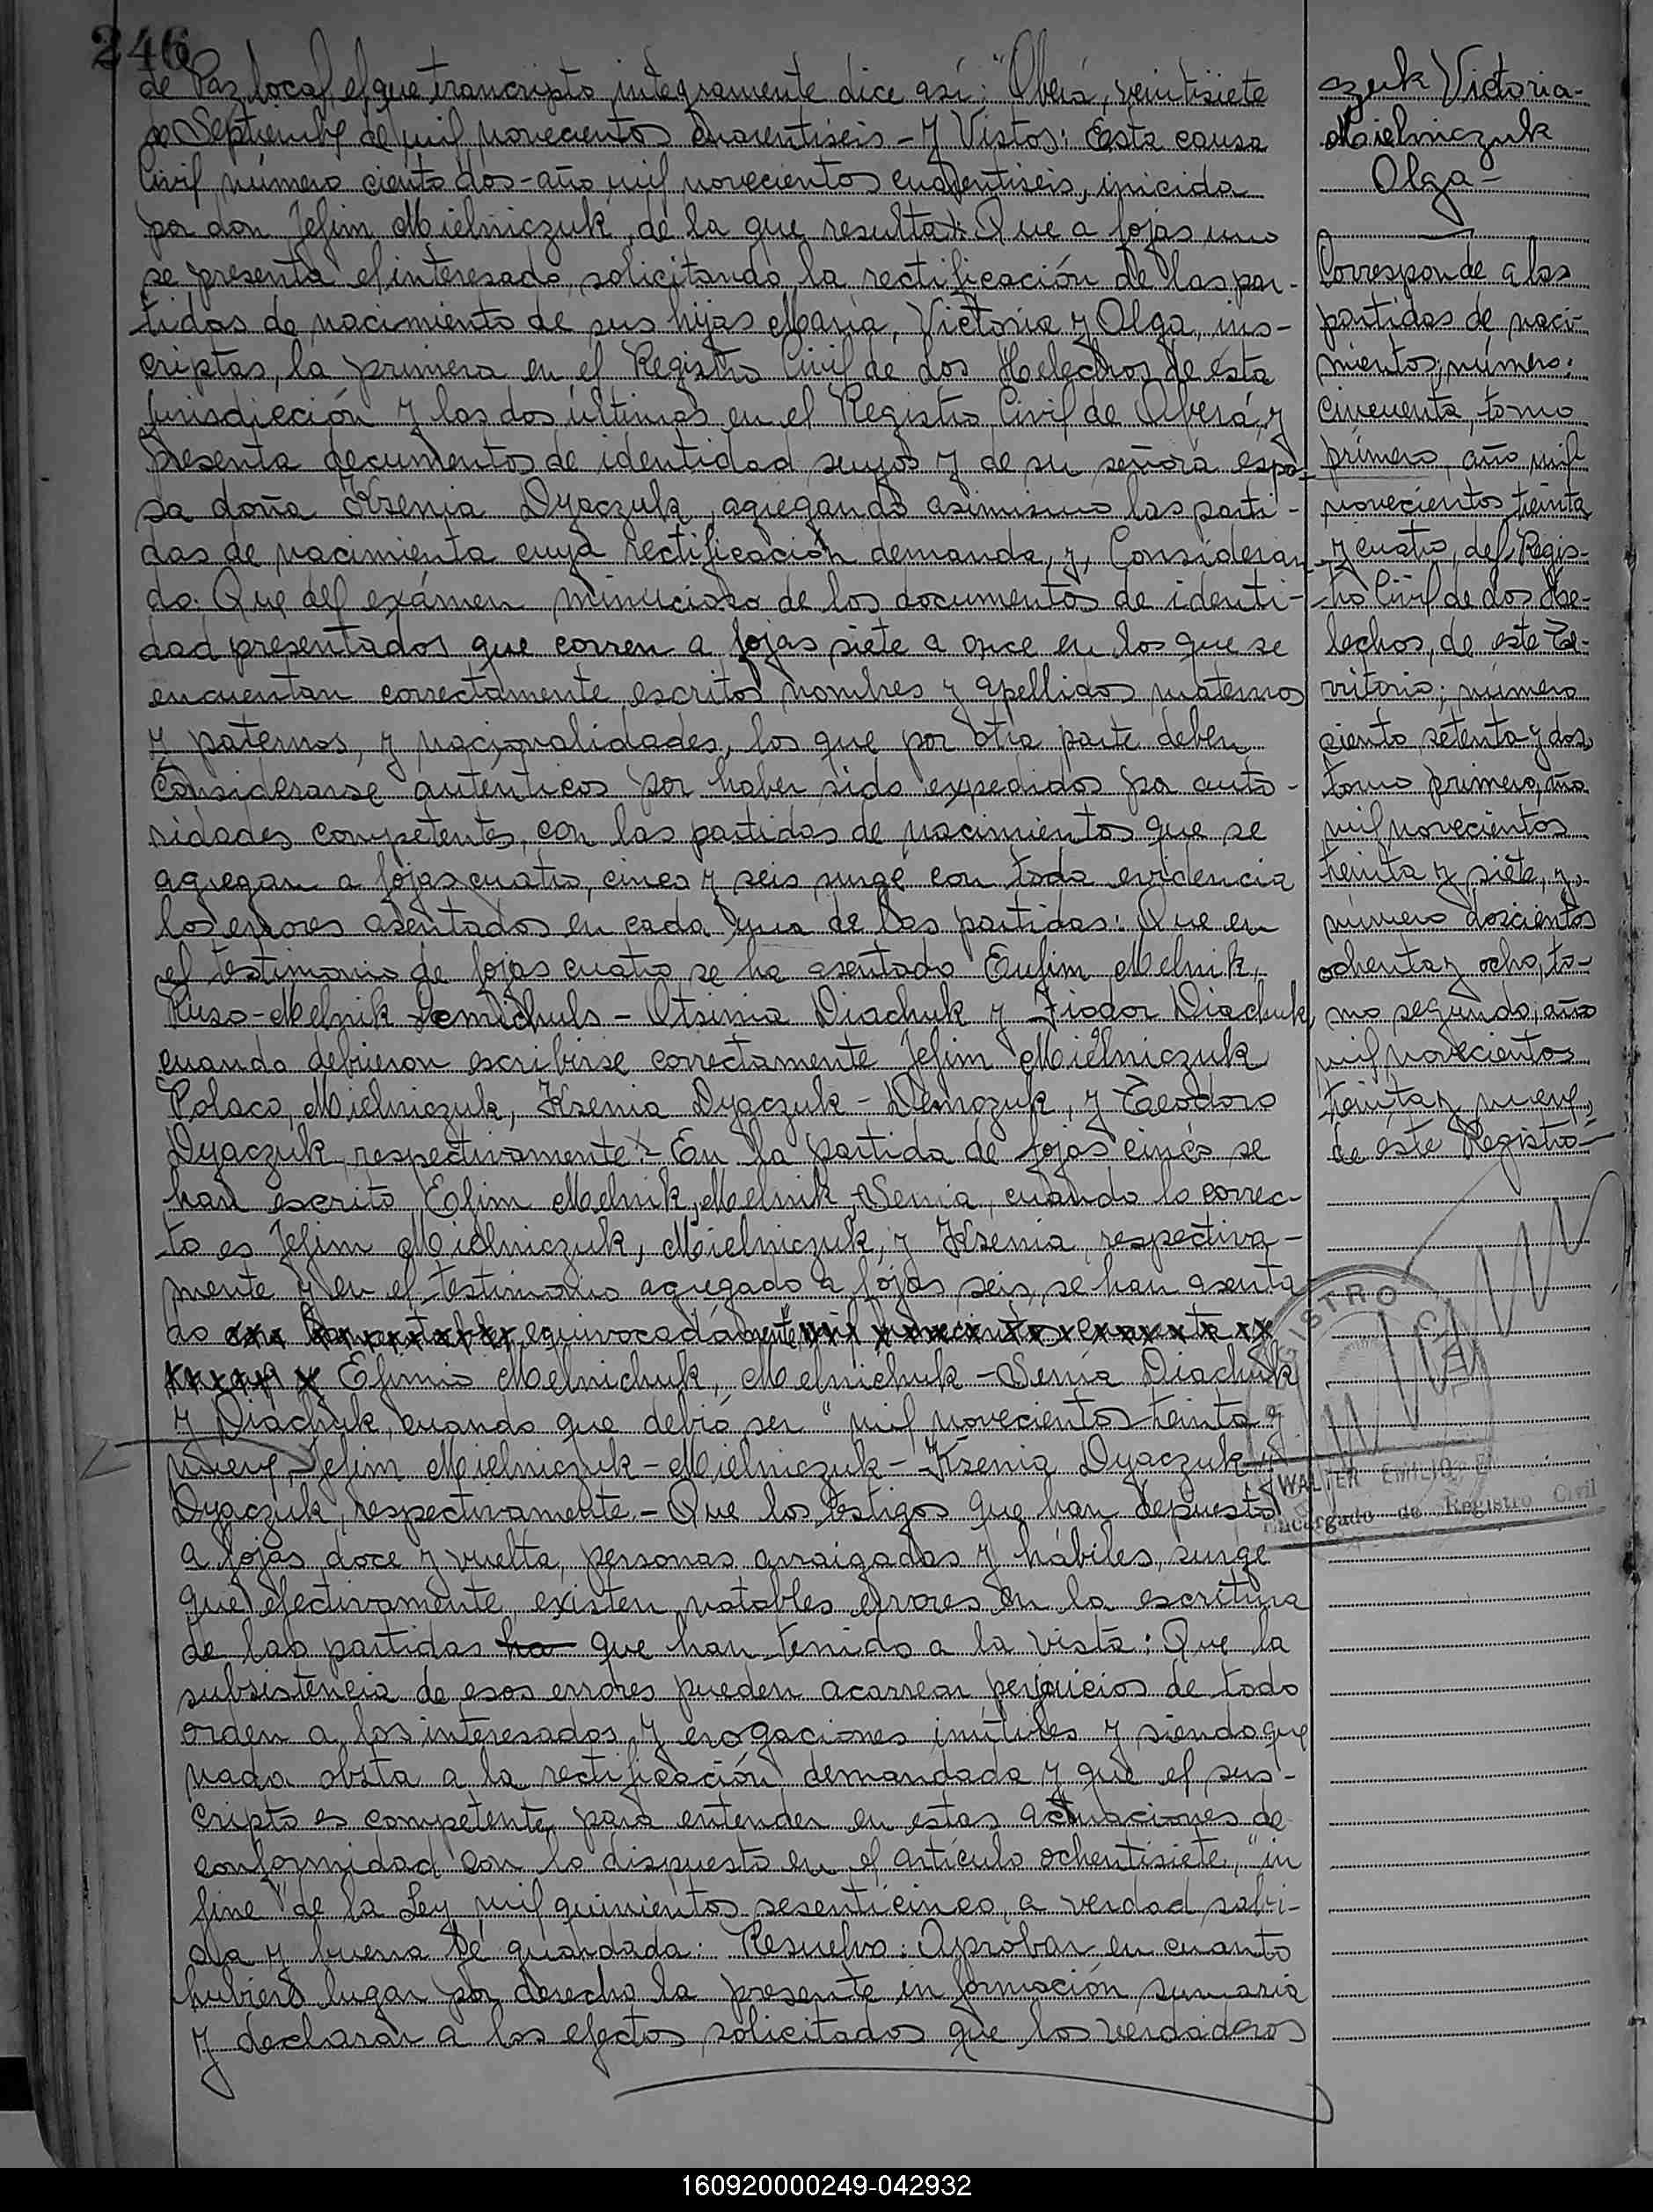 246
de Paz local, el que transcripto integramente dice así: "Oberá, veintisiete
de Septiembre de mil novecientos cuarentiseis - y Vistos: Esta causa
Civil número ciento dos - año mil novecientos cuarentiseis, inicida
por don Jefim Mielniczuk, de la que resulta: Que a fojas uno
se presenta el interesado, solicitando la rectificación de las par-
tidas de nacimiento de sus hijas María, Victoria y Olga, ins-
criptas, la primera en el Registro Civil de Los Helechos de ésta
jurisdicción y las dos últimas en el Registro Civil de Oberá, y
presenta documentos de identidad suyos y de su señora espo-
sa doña Ksenia Dyaczuk, agregando asimismo las parti-
das de nacimiento cuya rectificación demanda, y, Consideran
do: Que del exámen minucioso de los documentos de identi-
dad presentados que corren a fojas siete a once en los que se
encuentan correctamente escritos nombres y apellidos maternos
y paternos, y nacionalidades, los que por otra parte deben
considerarse auténticos por haber sido expedidos por auto-
ridades competentes, con las partidas de nacimientos que se
agregan a fojas cuatro, cinco y seis, surge con toda evidencia
los errores asentados en cada una de las partidas: Que en
el testimonio de fojas cuatro se ha asentado Eufim Melnik,
Ruso - Melnik - Otsinia Diachuk y Fiodor Diachuk,
cuando debieron escribirse correctamente Jefim Mielniczuk
Polaco, Mielniczuk, Ksenia Dyaczuk - Demczuk, y Teodoro
Dyaczuk, respectivamente - En la partida de fojas cinco se
han escrito Efim Melnik, Melnik, Senia, cuando lo correc-
to es Jefim Mielniczuk, Mielniczuk, y Ksenia, respectiva-
mente y en el testimonio agregado a fojas seis, se han asenta
do equivocadamente
Efimio Melnichuk, Melnichuk - Senia Diachuk
y Diachuk, cuando que debió ser "mil novecientos treinta y
nueve, Jefim Mielniczuk - Mielniczuk - Ksenia Dyaczuk y
Dyaczuk, respectivamente. - Que los testigos que han depuesto
a fojas doce y vuelta, personas arraigadas y hábiles, surge
que efectivamente, existen notables errores en la escritura
de las partidas ha que han tenido a la vista: Que la
subsistencia de esos errores pueden acarrear perjuicios de todo
orden a los interesados, y erogaciones inútiles y siendo que
nada obsta a la rectificación demandada y que el sus-
cripto es competente para entender en estas actuaciones de
conformidad con lo dispuesto en el artículo ochentisiete, "in
fine" de la Ley mil quinientos sesenticinco, a verdad sabi-
da y buena fe guardada: Resuelvo: Aprobar en cuanto
hubiere lugar por derecho la presente información sumaria
y declarar a los efectos solicitados que los verdaderos
czuk Victoria-
Mielniczuk
Olga-
Corresponde a las
partidas de naci-
mientos, número:
cincuenta, tomo
primero, año mil
novecientos treinta
y cuatro, del Regis-
tro Civil de Los He-
lechos, de este Te-
rritorio; número
ciento setenta y dos,
tomo primero, año
mil novecientos
treinta y siete, y
número doscientos
ochenta y ocho, to-
mo segundo, año
mil novecientos
treinta y nueve,
de éste Registro-
REGISTRO CIVIL
WALTER EMILIO
Encargado de Registro Civil
160920000249-042932